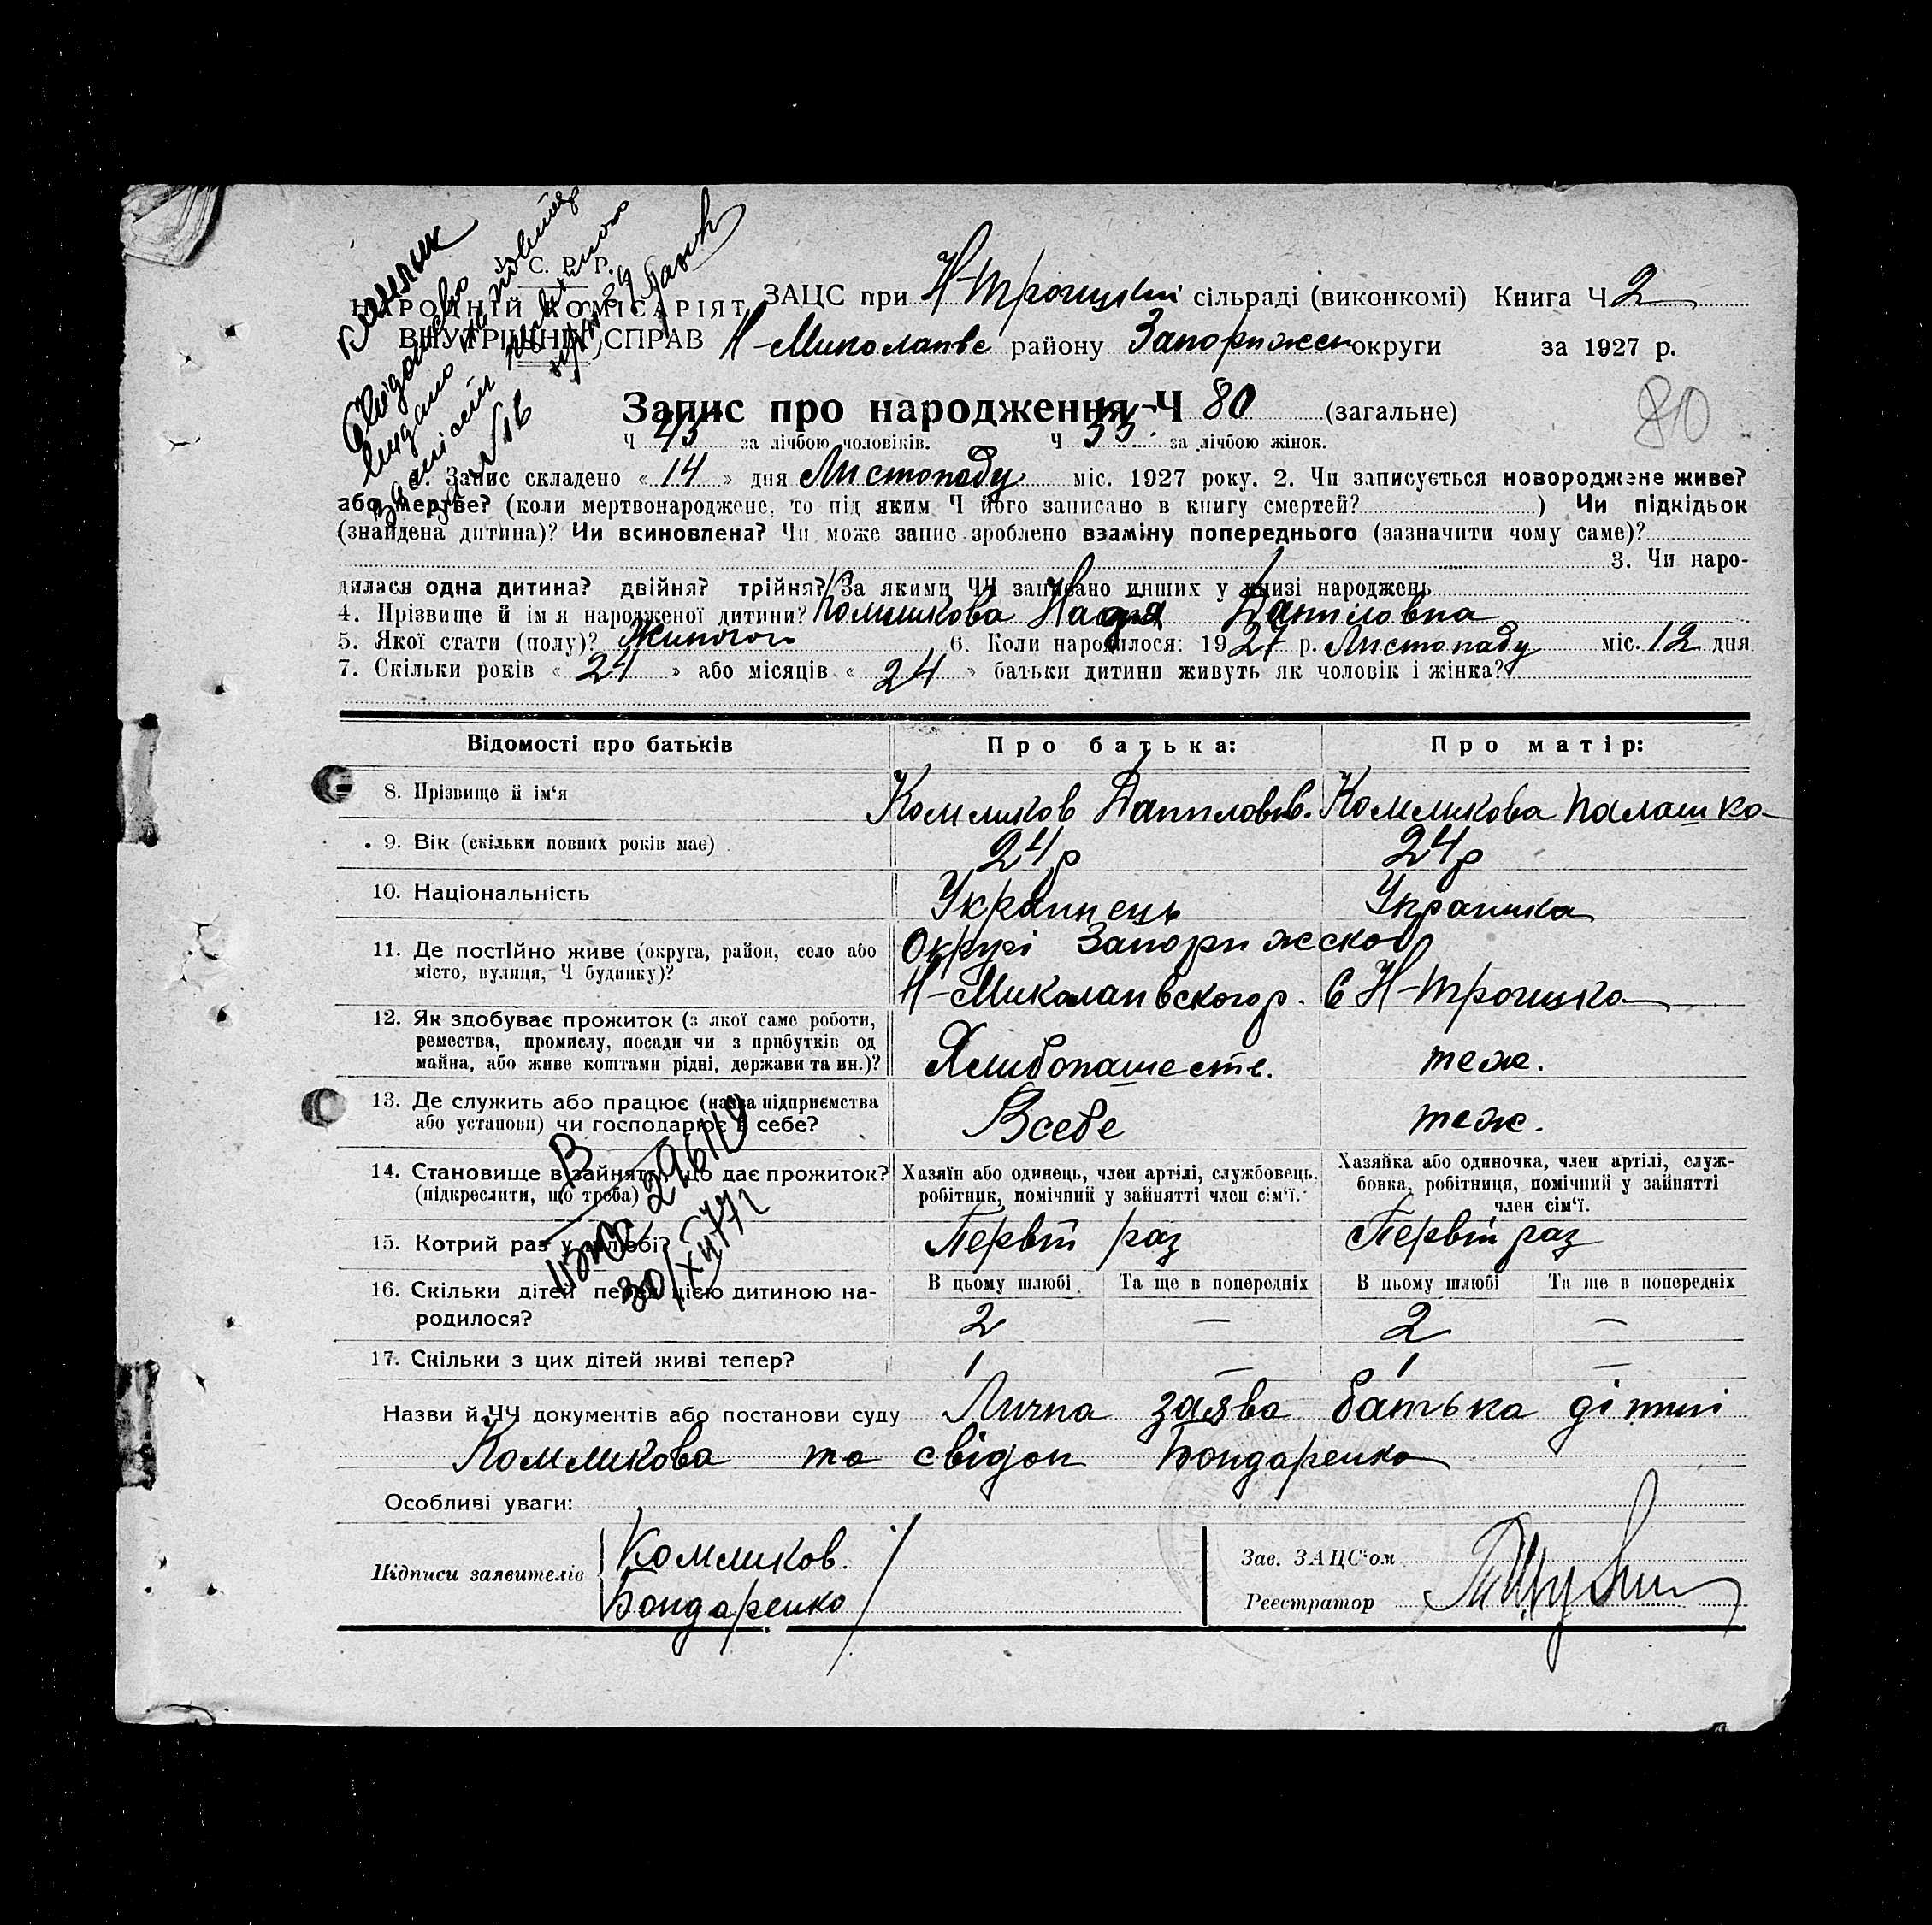 У. С. Р. Р.
НАРОДНІЙ КОМІСАРІЯТ
ВНУТРІШНІХ СПРАВ
ЗАЦС при Н-Троицькій сільраді (виконкомі) Книга Ч 2
Н-Миколаївс району Запорижськ округи за 1927 р.
Запис про народження Ч 80 (загальне)
80
Ч 45 за лічбою чоловіків. Ч 35 за лічбою жінок.
1. Запис складено « 14 » дня Листопаду міс. 1927 року. 2. Чи записується новороджене живе?
або мертве? (коли мертвонароджене, то під яким Ч його записано в книгу смертей? ) Чи підкідьок
(знайдена дитина)? Чи всиновлена? Чи може запис зроблено взаміну попереднього (зазначити чому саме)?
3. Чи наро-
дилася одна дитина? двійня? трійня? За якими ЧЧ записано инших у книзі народжень
4. Прізвище й ім я народженої дитини? Комликова Надія Даниловна
5. Якої стати (полу)? Жиночої 6. Коли народилося: 1927 р. Листопаду міс. 12 дня
7. Скільки років « 24 » або місяців « 24 » батьки дитини живуть як чоловік і жінка?
Відомості про батьків Про батька: Про матір:
8. Прізвище й ім'я Комликов Данило Комликова Палашка
9. Вік (скільки повних років має) 24 р 24 р
10. Національність Українець Українка
11. Де постійно живе (округа, район, село або
місто, вулиця, Ч будинку)?
Округі Запорижской
Н-Миколаївского р. с Н-Троицко
12. Як здобуває прожиток (з якої саме роботи,
ремества, промислу, посади чи з прибутків од
майна, або живе коштами рідні, держави та ин.)?
Хлибопашеств. теж.
13. Де служить або працює (назва підприємства
або установи) чи господарює в себе?
Всебе теж.
14. Становище в зайнятті, що дає прожиток?
(підкреслити, що треба)
Хазяїн або одинець, член артілі, службовець,
робітник, помічний у зайнятті член сім'ї.
Хазяйка або одиночка, член артілі, служ-
бовка, робітниця, помічний у зайнятті
член сім'ї.
15. Котрий раз у шлюбі? Первий раз Первий раз
16. Скільки дітей перед цією дитиною на-
родилося?
В цьому шлюбі Та ще в попередніх В цьому шлюбі Та ще в попередніх
2 — 2 —
17. Скільки з цих дітей живі тепер? 1 — 1 —
Назви й ЧЧ документів або постанови суду Лична заява батька дітині
Комликова та свідок Бондаренко
Особливі уваги:
Підписи заявителів
Комликов
Бондаренко
Зав. ЗАЦС'ом
Реєстратор